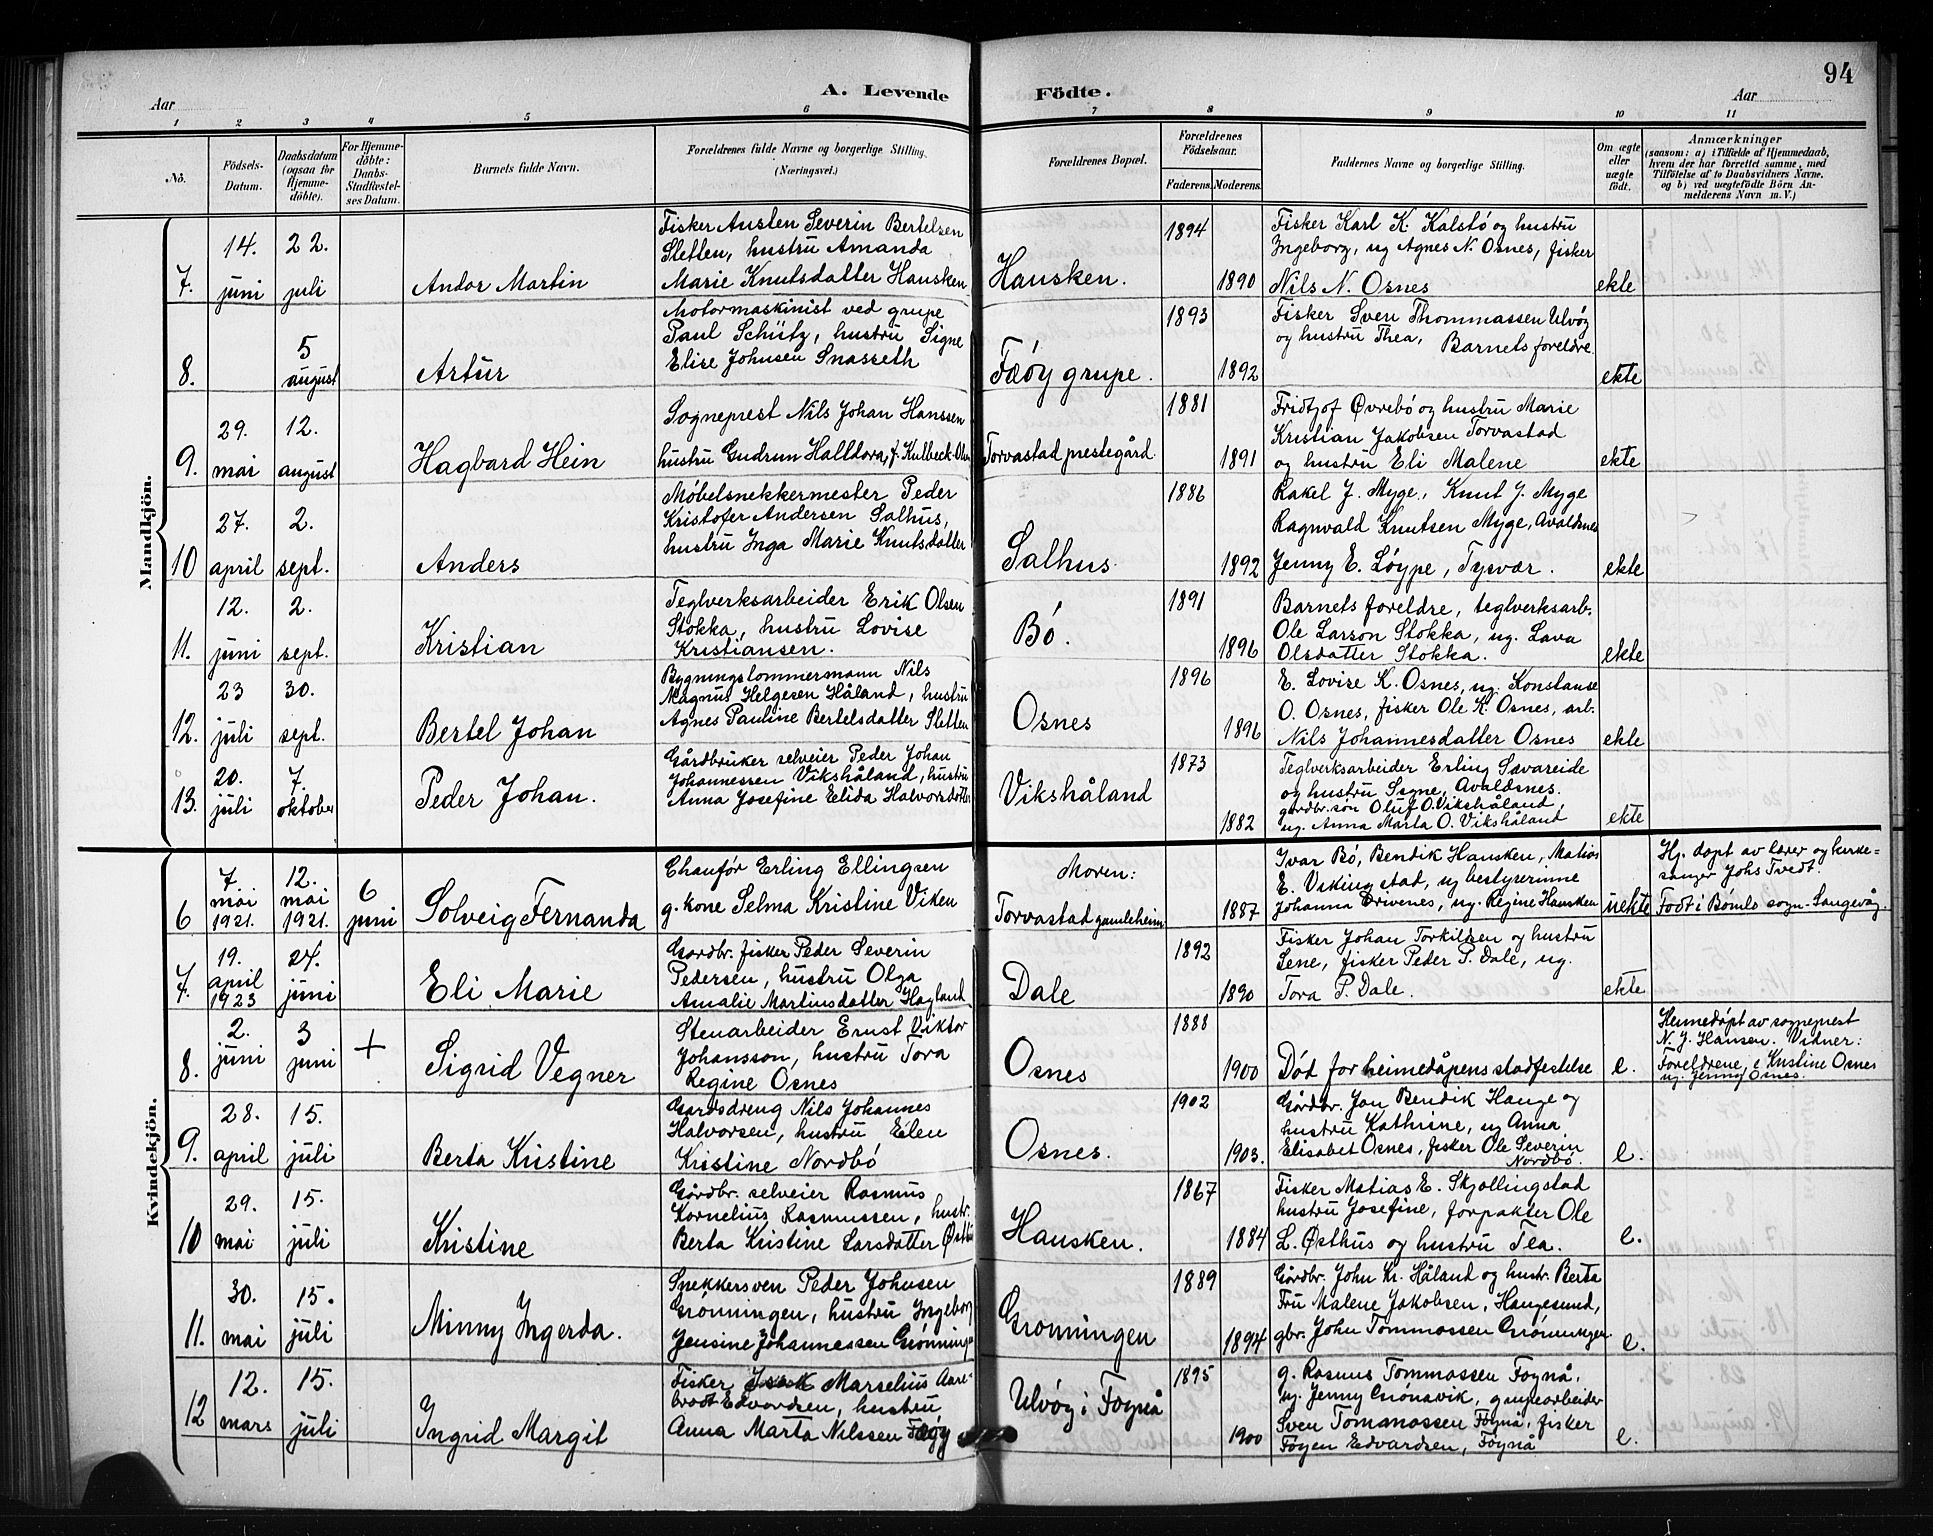 94
A. Levende Födte.
Aar
Aar
1 2 3 4 5 6 7 8 9 10 11
No.
Födsels-Datum.
Daabsdatum (ogsaa for Hjemmedøbte).
For Hjemmedøbte: Daabs-Stadfæstelses Datum.
Barnets fulde Navn.
Forældrenes fulde Navne og borgerlige Stilling. (Næringsvei.)
Forældrenes Bopæl.
Forældrenes Födselsaar.
Faderens. Moderens.
Faddernes Navne og borgerlige Stilling.
Om ægte eller uægte födt.
Anmærkninger
(saasom: a) i Tilfælde af Hjemmedaab, hvem der har forrettet samme, med Tilföielse af to Daabsvidners Navne, og b) ved uægtefödte Börn Anmelderens Navn m. V.)
Mandkjön.
7. 14. juni
22 juli
Andor Martin
Fisker Austen Severin Bertelsen
Sletten, hustru Amanda
Marie Knutsdatter Hausken
Hausken.
1894
1890
Fisker Karl K. Kalstø og hustru
Ingeborg, ug Agnes N. Osnes, fisker
Nils N. Osnes
ekte
8.
5 august
Artur
Motormaskinist ved grupe
Paul Schütz, hustru Signe
Elise Johnsen Snasseth
Fæøy grupe.
1893
1892
Fisker Sven Thommassen Ulvøy
og hustru Thea, Barnets foreldre
ekte
9. 29. mai
12. august
Hagbard Hein
Sogneprest Nils Johan Hanssen
hustru Gudrun Halldora, f. Kulbeck-Olsen
Torvastad prestegård
1881
1891
Fridtjof Øvrebø og hustru Marie
Kristian Jakobsen Torvastad
og hustru Eli Malene
ekte
10 27. april
2. sept.
Anders
Møbelsnekkermester Peder
Kristofer Andersen Salhus,
hustru Inga Marie Knutsdatter
Salhus
1886
1892
Rakel J. Myge, Knut J. Myge
Ragnvald Knutsen Myge, Avaldsnes
Jenny E. Løype, Tysvær.
ekte
11. 12. juni
2. sept.
Kristian
Teglverksarbeider Erik Olsen
Stokka, hustru Lovise
Kristiansen.
Bø.
1891
1896
Barnets foreldre, teglverksarb.
Ole Larson Stokka, ug. Lava
Olsdatter Stokka.
ekte
12. 23 juli
30. sept.
Bertel Johan
Bygningstommermann Nils
Magnus Helgesen Håland, hustru
Agnes Pauline Bertelsdatter Sletten
Osnes
1896
1896
E. Lovise K. Osnes, ug. Konstanse
O. Osnes, fisker Ole K. Osnes, arb.
Nils Johannesdatter Osnes
ekte
13. 20. juli
7. oktober
Peder Johan.
Gårdbruker selveier Peder Johan
Johannessen Vikshåland, hustru
Anna Josefine Elida Halvorsdatter
Vikshåland
1873
1882
Teglverksarbeider Erling Sævareide
og hustru Signe, Avaldsnes.
gårdbr. søn Oluf O. Vikshåland,
ug. Anna Marta O. Vikshåland
ekte
Kvindekjön.
6 7. mai 1921.
12. mai 1921.
6 juni
Solveig Fernanda
Chauför Erling Ellingsen
g. kone Selma Kristine Viken
Moren:
Torvastad gamleheim
1887
Ivar Bø, Bendik Hausken, Matias
E. Vikingstad, ug bestyrerinne
Johanna Drivenes, ug. Regine Hausken
uekte
Hj. døpt av lærer og kirke=
sanger Johs Tvedt.
Født i Bømlo sogn - Langevåg.
7. 19. april 1923
24. juni
Eli Marie
Gardbr. fisker Peder Severin
Pedersen, hustru Olga
Amalie Martinsdatter Hagland
Dale
1892
1890
Fisker Johan Torkildsen og hustru
Lene, fisker Peder P. Dale, ug.
Tora P. Dale.
ekte
8. 2. juni
3 juni
+
Sigrid Vegner
Stenarbeider Ernst Viktor
Johansson, hustru Tora
Regine Osnes
Osnes
1888
1900
Død før heimedåpens stadfestelse
e.
Heimedøpt av sogneprest
N. J. Hansen. Vidner:
Foreldrene, e Kristine Osnes
ug. Jenny Osnes.
9. 28. april
15. juli
Berta Kristine
Gardsdreng Nils Johannes
Halvorsen, hustru Elen
Kristine Nordbø
Osnes.
1902
1903.
Gårdbr. Jan Bendik Hauge og
hustru Kathrine, ug Anna
Elisabet Osnes, fisker Ole Severin
Nordbø.
e.
10 29. mai
15. juli
Kristine
Gårdbr. selveier Rasmus
Kornelius Rasmussen, hustr.
Berta Kristine Larsdatter Østhus
Hausken.
1867
1884
Fisker Matias E. Skjøllingstad
hustru Josefine, forpakter Ole
L. Østhus og hustru Tea.
e.
11. 30. mai
15. juli
Minny Ingerda.
Snekkersven Peder Johnsen
Grønningen, hustru Ingeborg
Jensine Johannessen Grønningen
Grønningen
1889
1894
Gårdbr. John Kr. Håland og hustr. Berta
Fru Malene Jakobsen, Haugesund,
gbr. John Tommassen Grønningen.
e.
12 12. mars
15. juli
Ingrid Margit
Fisker Isak Marselius Aare-
brodt Edvardsen, hustru
Anna Marta Nilssen Fæøy
Ulvøy i Føynå
1895
1900
g. Rasmus Tommassen Føynå,
ug. Jenny Grønavik, grupearbeider
Sven Tomanassen Føynå, fisker
Føyen Edvardsen, Føynå
e.